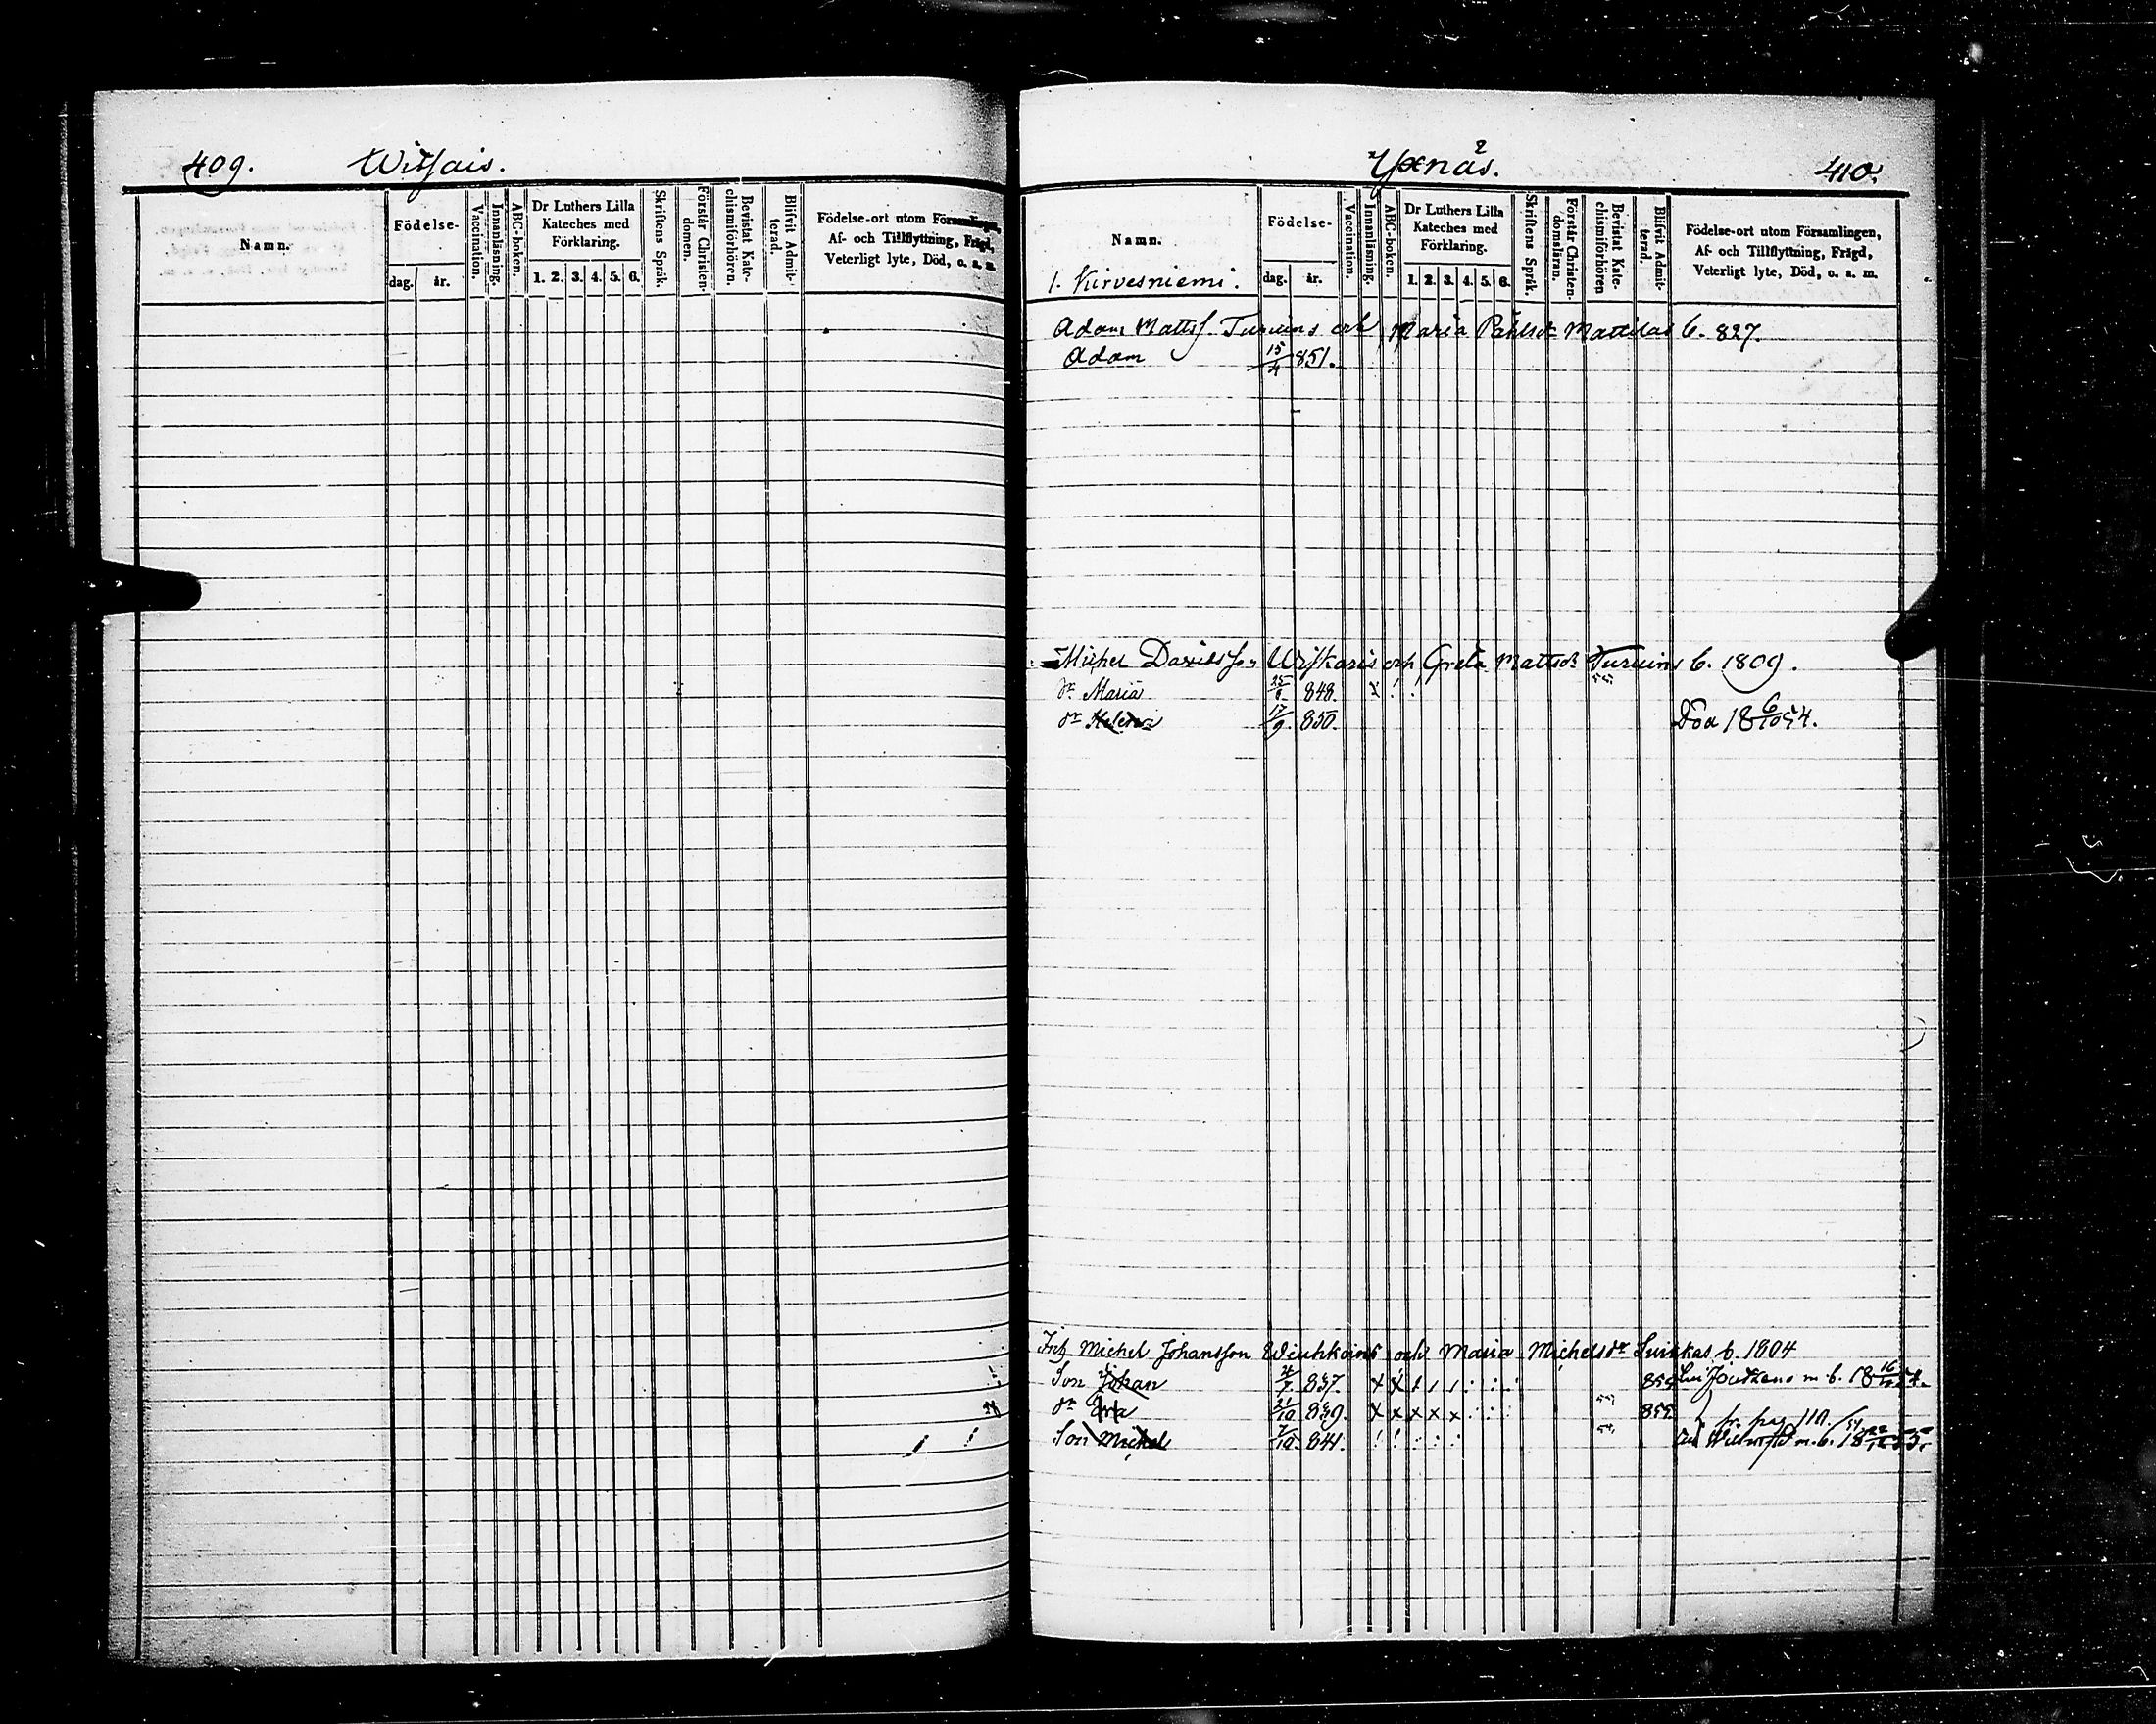 409. Witsais.
Namn.
Födelse-
dag. år.
Vaccination.
Innanläsning.
ABC-boken.
Dr Luthers Lilla Kateches med Förklaring.
1. 2. 3. 4. 5. 6.
Skriftens Språk.
Förstår Christendomen.
Bevistat Katechismiförhören.
Blifvit Admitterad.
Födelse-ort utom Församlingen,
Af- och Tillflyttning, Frägd,
Veterligt lyte, Död, o. s. m.
Yxnäs. 410.
Namn.
1. Kirvesniemi.
Födelse-
dag. år.
Vaccination.
Innanläsning.
ABC-boken.
Dr Luthers Lilla Kateches med Förklaring.
1. 2. 3. 4. 5. 6.
Skriftens Språk.
Förstår Christendomsläran.
Bevistat Katechismiförhören
Blifvit Admitterad.
Födelse-ort utom Församlingen,
Af- och Tillflyttning, Frägd,
Veterligt lyte, Död, o. s. m.
Adam Mattss. Turuins och Maria Påhlsdr Mattilas b. 827.
Adam 15/4 851.
Michel Davidsson och Greta Mattsdr Turuins b. 1809.
dr Maria 848.
dr Helena 17/9 850. Död 18 6/10 54.
Michel Johansson och Maria Michelsdr b. 1804
Son Johan 837. X X 855
dr 21/10 839. X X X X X 855 fr. pag 110.
Son Michel 7/10 841.